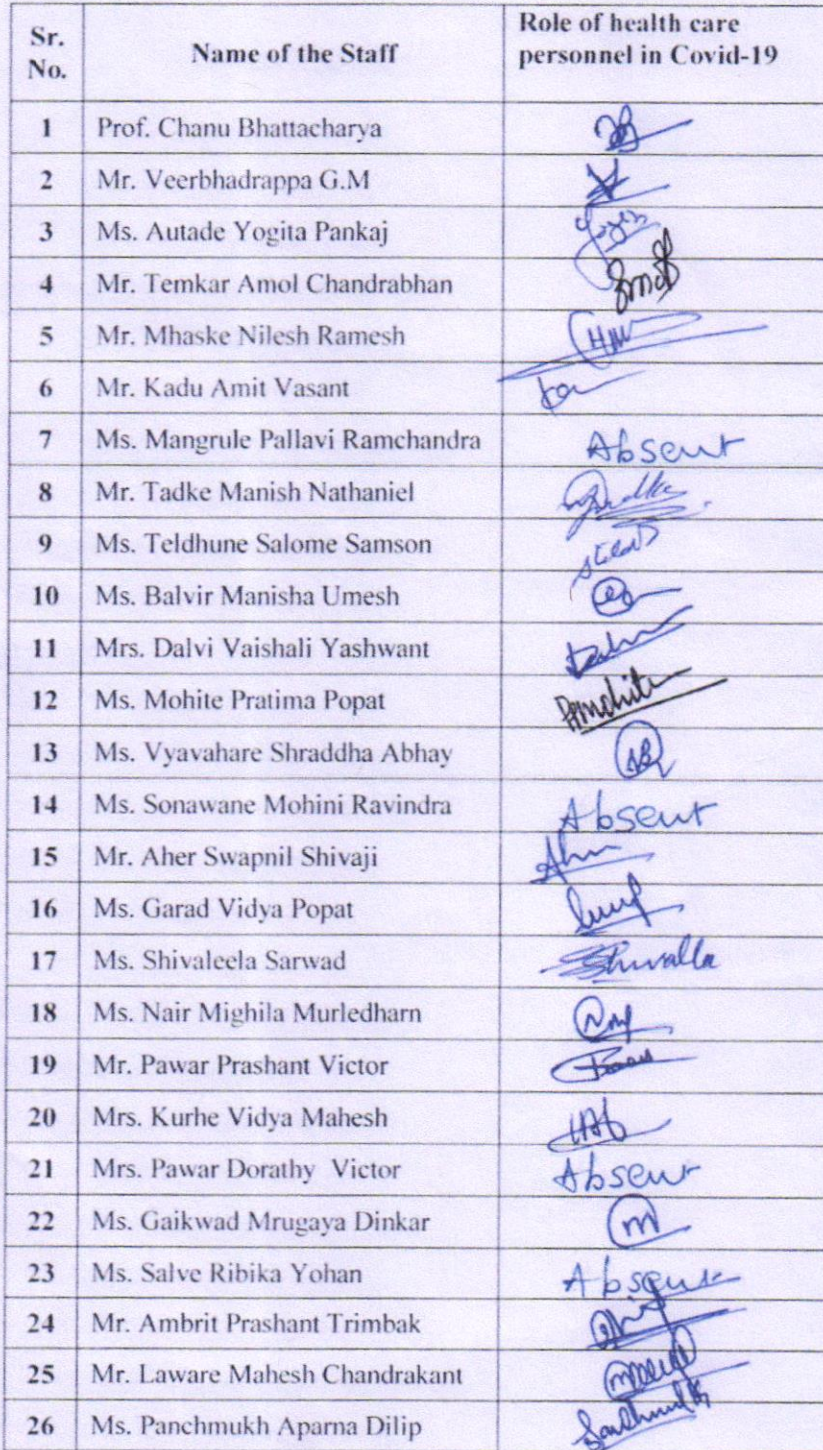 Sr. No. Name of the Staff Role of health care personnel in Covid-19
1 Prof. Chanu Bhattacharya
2 Mr. Veerbhadrappa G.M
3 Ms. Autade Yogita Pankaj
4 Mr. Temkar Amol Chandrabhan
5 Mr. Mhaske Nilesh Ramesh
6 Mr. Kadu Amit Vasant
7 Ms. Mangrule Pallavi Ramchandra Absent
8 Mr. Tadke Manish Nathaniel
9 Ms. Teldhune Salome Samson
10 Ms. Balvir Manisha Umesh
11 Mrs. Dalvi Vaishali Yashwant
12 Ms. Mohite Pratima Popat PPmohite
13 Ms. Vyavahare Shraddha Abhay
14 Ms. Sonawane Mohini Ravindra Absent
15 Mr. Aher Swapnil Shivaji
16 Ms. Garad Vidya Popat
17 Ms. Shivaleela Sarwad
18 Ms. Nair Mighila Murledharn
19 Mr. Pawar Prashant Victor
20 Mrs. Kurhe Vidya Mahesh
21 Mrs. Pawar Dorathy Victor Absent
22 Ms. Gaikwad Mrugaya Dinkar m
23 Ms. Salve Ribika Yohan Absent
24 Mr. Ambrit Prashant Trimbak
25 Mr. Laware Mahesh Chandrakant
26 Ms. Panchmukh Aparna Dilip